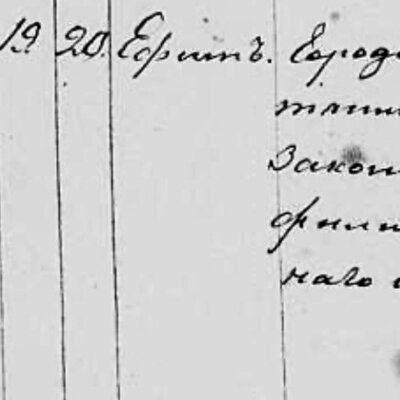 19 20. Ефимъ. Город
тими
Закон
фили
наго